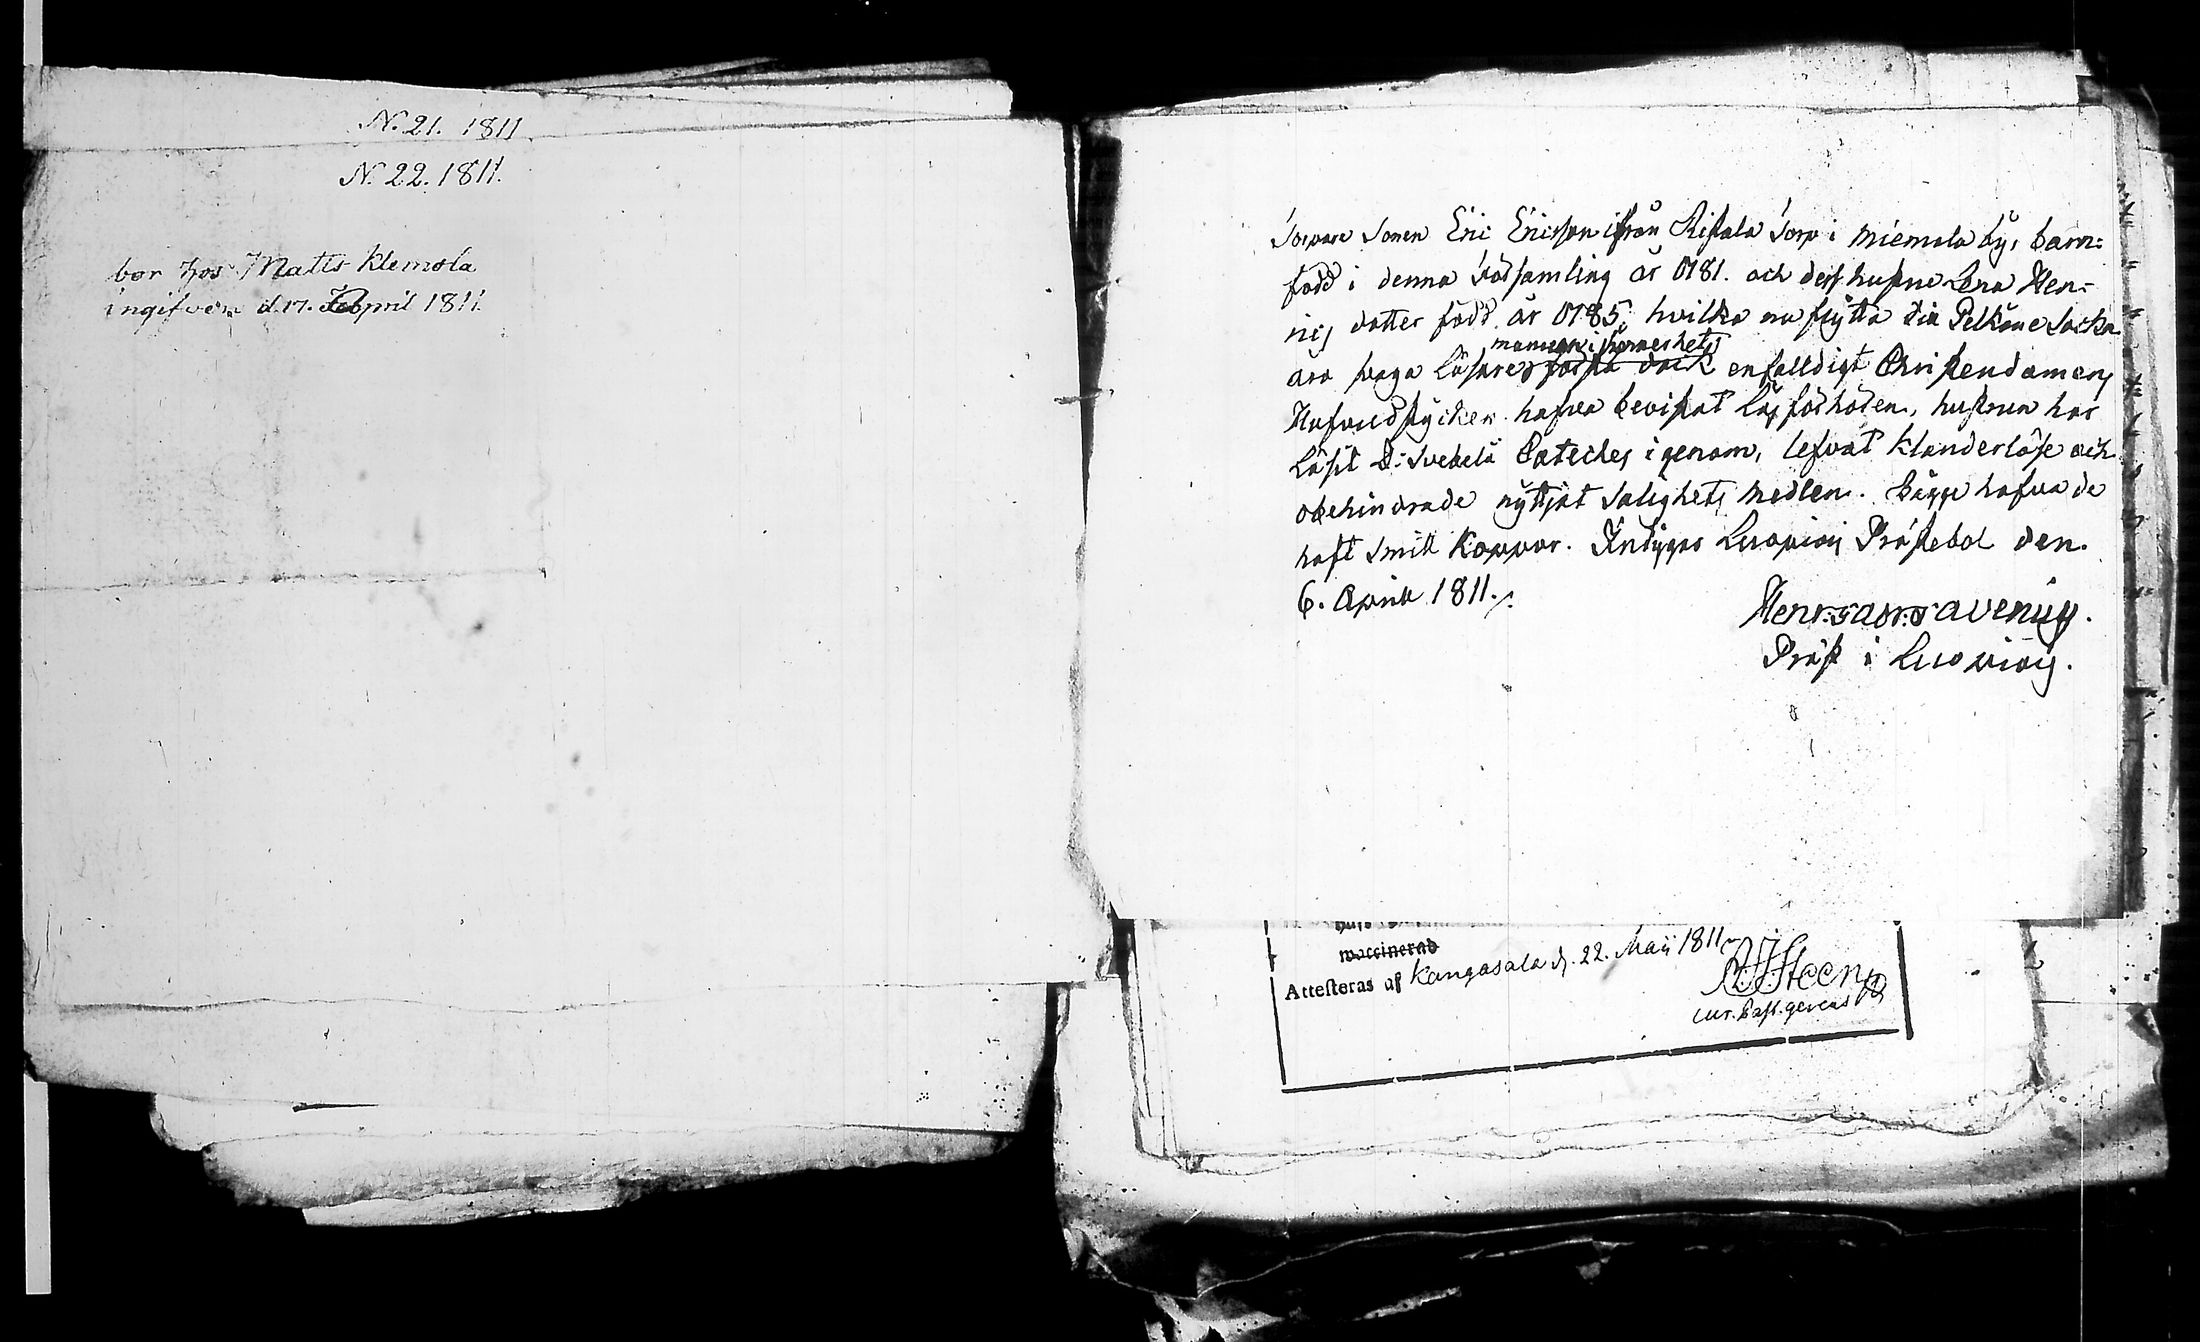 N. 21. 1811
N. 22. 1811.
bor hos Matts Klemola
ingifven d. 17. April 1811.
Torpare Sonen Eric Ericsson ifrån Ristala Torp i Miemola by, barn-
född i denna Församling år 0781. och dess hustru Lena Hen-
rics dotter född år 0785, hvilka nu flytta till Pelkäne Sockn
mannen i synnerhet
äro svaga läsare förstå dock enfalldigt Christendomens
Hufvudstycken hafva bevistat Läsförhören, hustrun har
läsit D: Svebelii Cateches igenom, lefvat klanderlöse och
obehindrade nyttjat Salighets medlen. Bägge hafva de
haft Smitt Koppor. Intygas Luopiois Prästebol den.
6. April 1811.
Henr: Gabr: Gavenius.
Präst i Luopiois.
vaccinerad
Attesteras af Kangasala d. 22. Maii 1811
Steen
cur. past. gerens